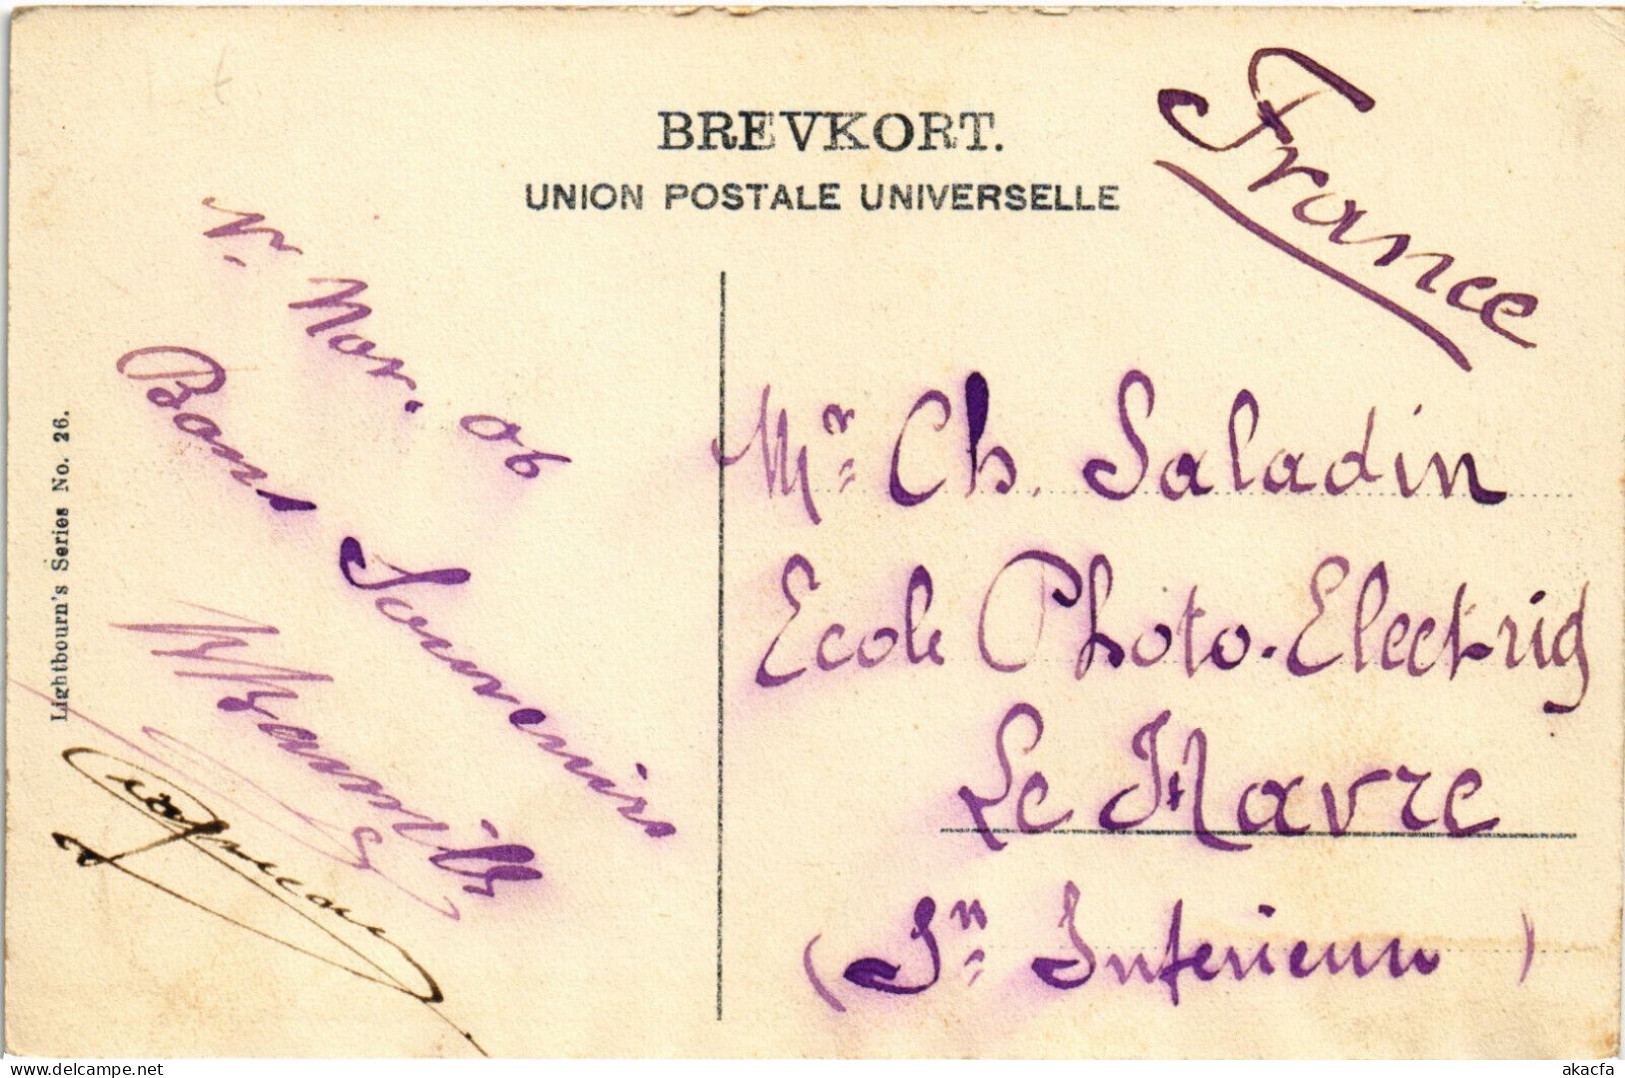 BREVKORT.
UNION POSTALE UNIVERSELLE
France
Nov. 06
Bons Souvenirs
Lightbourn's Series No. 26.
Mr. Ch. Saladin
Ecole Photo-Electriq
Le Havre
(Sn Inferieur)
akacfa